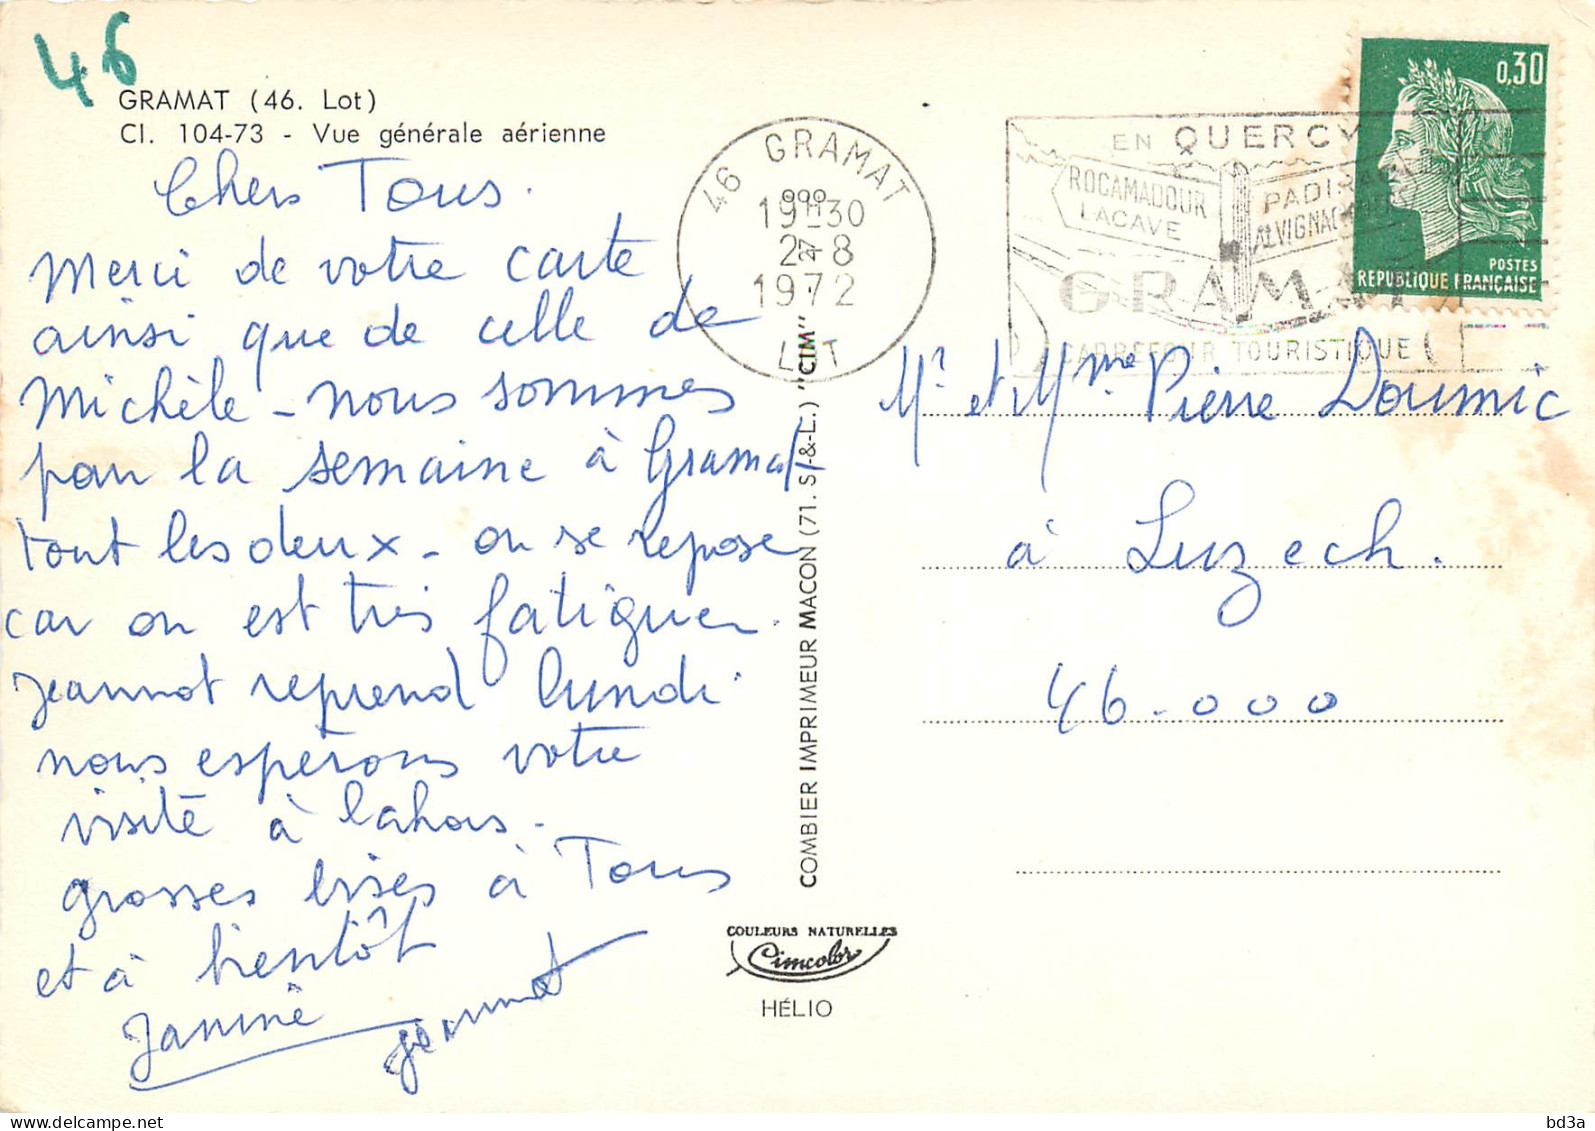 46
GRAMAT (46. Lot)
Cl. 104-73 - Vue générale aérienne
Chers Tous.
Merci de votre carte
ainsi que de celle de
Michèle - nous sommes
pour la semaine à Gramat
tout les deux - on se repose
car on est très fatiguer.
Jeannot reprend lundi
nous espérons votre
visite à Cahors.
grosses bises à Tous
et à bientôt
Janine
Jeannot
46 GRAMAT
19H30
28-8
1972
LOT
EN QUERCY
ROCAMADOUR
LACAVE
PADIRAC
ALVIGNAC
GRAMAT
CARREFOUR TOURISTIQUE
0,30
POSTES
REPUBLIQUE FRANÇAISE
Mr. et Mme. Pierre Doumic
à Luzech.
46-000
COMBIER IMPRIMEUR MACON (71. S.-&-L.) "CIM"
COULEURS NATURELLES
Cimcolor
HÉLIO
bd3a